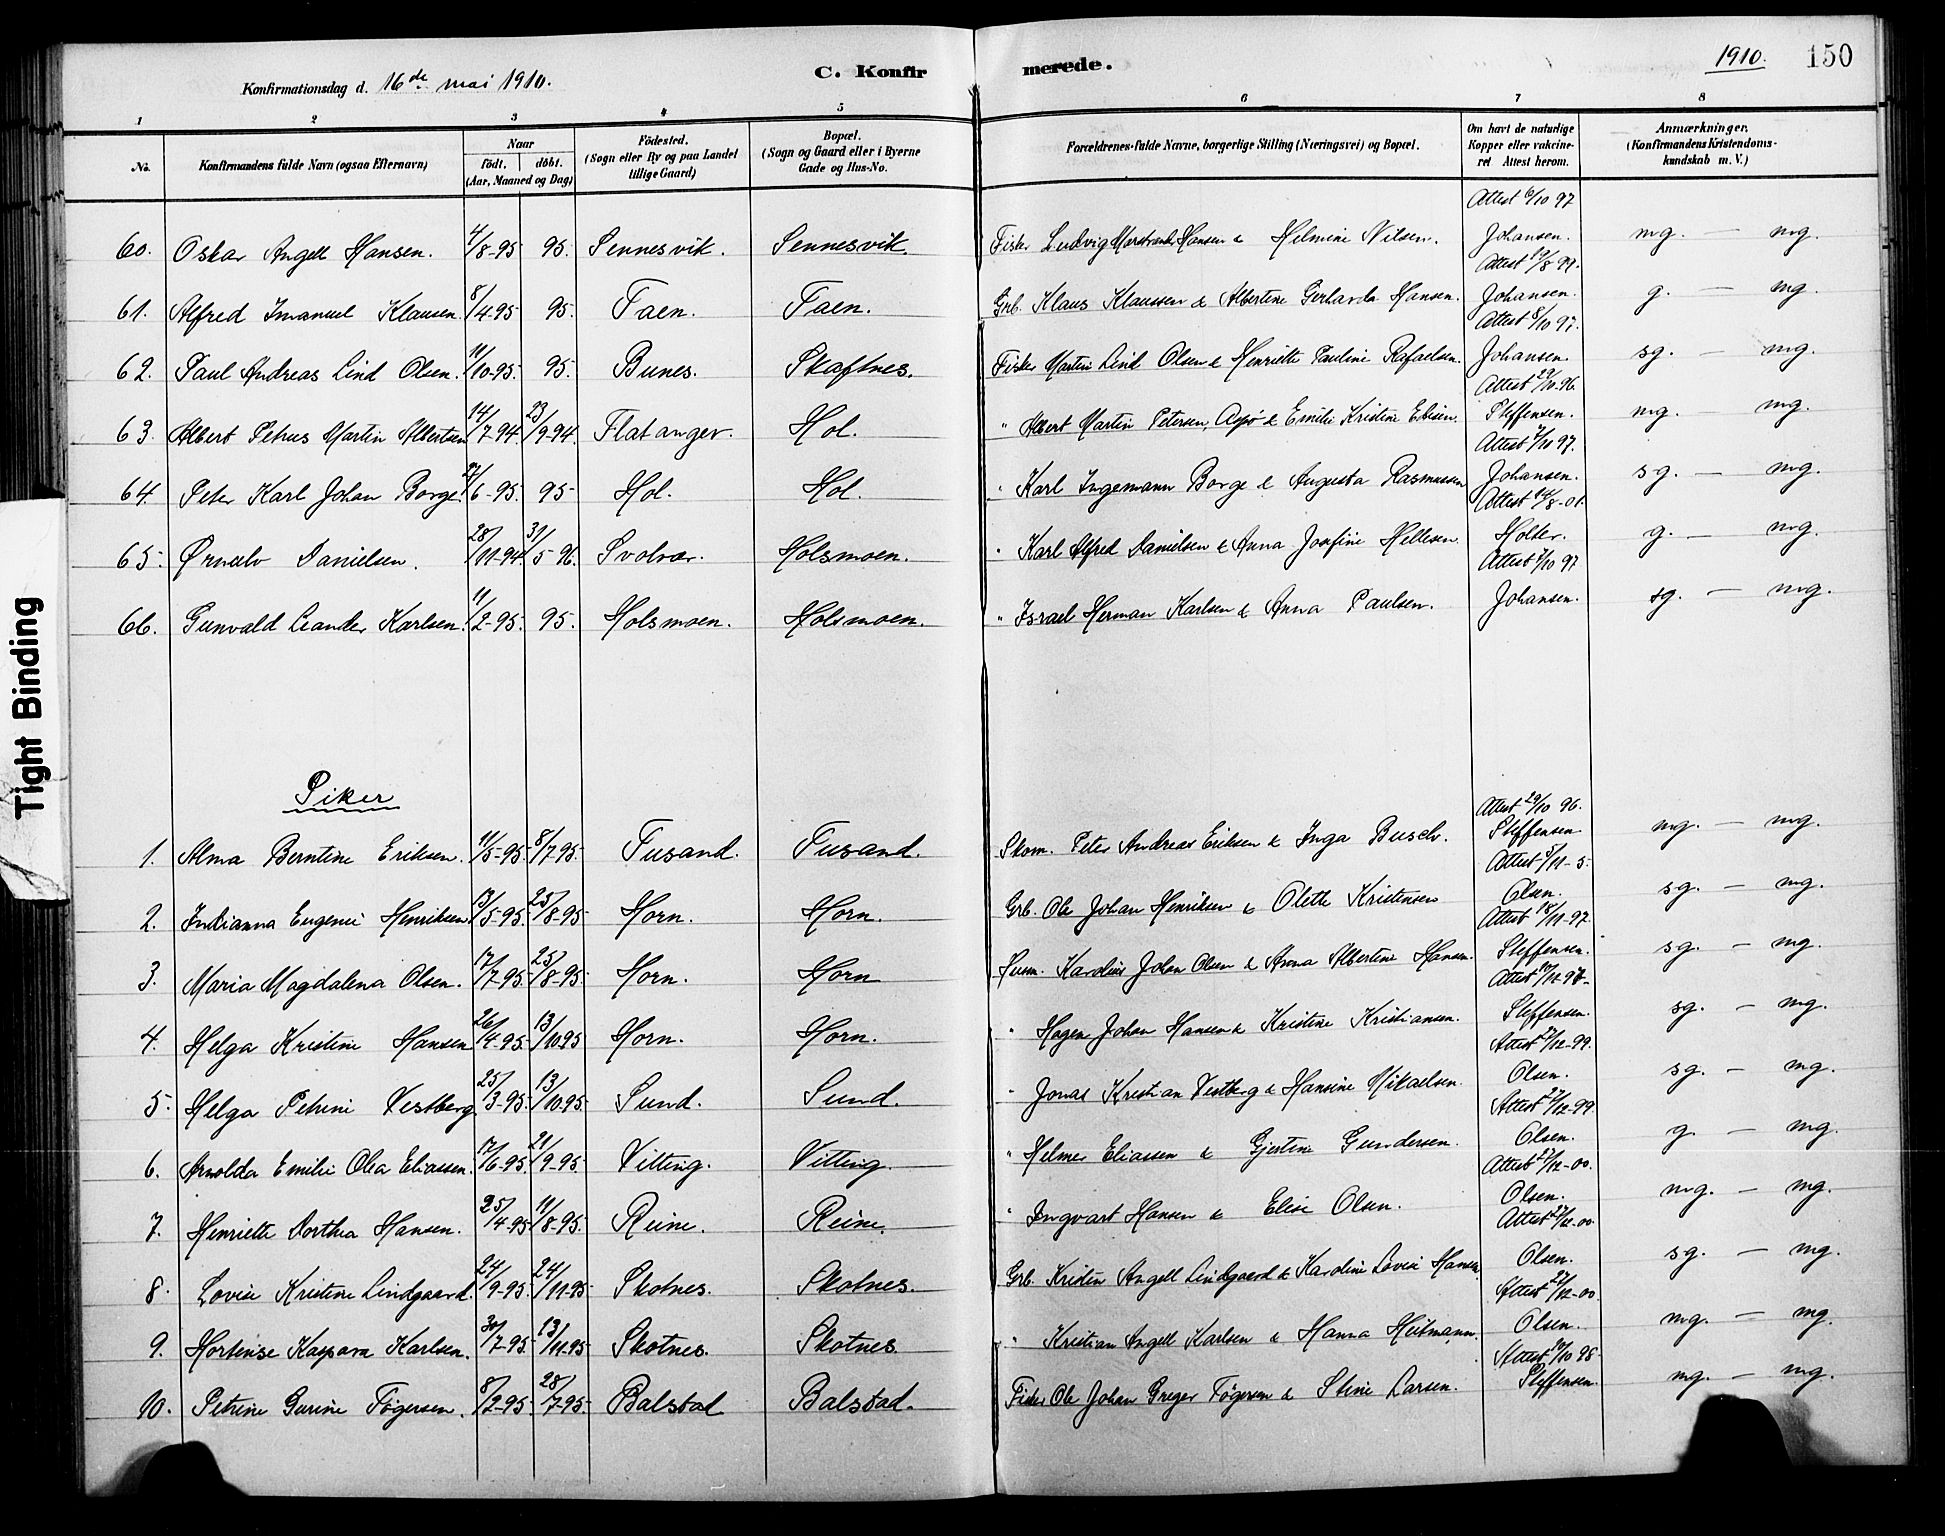 Konfirmationsdag d. 16de mai 1910.
C. Konfirmerede.
1910. 150
1 2 3 4 5 6 7 8
No. Konfirmandens fulde Navn (ogsaa Efternavn) Naar født, døbt. (Aar, Maaned og Dag) Födested. (Sogn eller By og paa Landet tillige Gaard) Bopæl. (Sogn og Gaard eller i Byerne Gade og Hus-No. Forældrenes fulde Navne, borgerlige Stilling (Næringsvei) og Bopæl. Om havt de naturlige Kopper eller vakcineret Attest herom. Anmærkninger. (Konfirmandens Kristendomskundskab m. V.)
60. Oskar Angell Hansen. 4/8-95 95. Sennesvik. Sennesvik. Fisker Ludvig Marstrander Hansen & Helmine Nilsen. Attest 6/10 97 Johansen. mg. — mg.
61. Alfred Imanuel Klausen. 8/4-95 95. Taen. Taen. Grb. Klaus Klaussen & Albertine Gerharda Hansen. Attest 19/8 99. Johansen. g. — mg.
62. Paul Andreas Lind Olsen. 11/10-95. 95. Bunes. Skaftnes. Fisker Martin Lind Olsen & Henriette Pauline Rafaelsen. Attest 8/10 97. Johansen. sg. — mg.
63. Albert Petrus Martin Albertsen 14/7-94 23/9-94. Flatanger. Hol. " Albert Martin Petersen, Aspø & Emilie Kristine Elisen. Attest 29/10-96. Steffensen. mg. mg.
64. Peter Karl Johan Borge. 27/6-95. 95 Hol. Hol. " Karl Ingemann Borge & Augusta Rasmussen Attest 7/10 97. Johansen. sg. — mg.
65. Ørnulv Danielsen. 28/11-94. 31/5 96. Svolvær. Holsmoen. " Karl Alfred Danielsen & Anna Josefine Hellesen. Attest 14/8-01. Holter. g. — mg.
66. Gunvald Leander Karlsen. 11/2-95. 95. Holsmoen. Holsmoen. " Israel Herman Karlsen & Anna Paulsen. Attest 7/10 97 Johansen. sg. — mg.
Piker
1. Alma Berntine Eriksen. 11/5-95. 8/7-95. Fusand. Fusand. Skom. Peter Andreas Eriksen & Inga Busch. Attest 29/10 96. Steffensen. mg. — mg.
2. Indianna Eugenie Henriksen 13/5-95. 25/8-95 Horn. Horn. Grb. Ole Johan Henriksen & Olette Kristensen Attest 5/11-5. Olsen. sg. — mg.
3. Maria Magdalena Olsen. 17/7-95. 25/8-95. Horn. Horn Husm. Karolius Johan Olsen & Anna Albertine Hansen. Attest 18/11-97. Steffensen. sg. — mg.
4. Helga Kristine Hansen 26/4-95. 13/10 95 Horn. Horn. " Hagen Johan Hansen & Kristine Kristiansen. Steffensen. sg. — mg.
5. Helga Petrine Vestberg 25/3-95. 13/10-95. Sund. Sund. " Jonas Kristian Vestberg & Hansine Mikaelsen. Attest 27/12-99. Olsen. sg. — mg.
6. Arnolda Emilie Olea Eliassen. 17/6-95. 21/9-95. Vitting. Vitting. " Helmer Eliassen & Gjertine Gundersen. Attest 27/12-99. Olsen. g. — mg.
7. Henriette Dorthea Hansen. 25/4-95 11/8-95. Reine. Reine. " Ingvart Hansen & Elise Olsen. Attest 27/12-00. Olsen. mg. — mg.
8. Lovise Kristine Lindgaard. 24/9-95. 24/11-95 Skotnes. Skotnes. Grb. Kristen Angell Lindgaard & Karoline Lovise Hansen. Attest 27/12-00. Olsen. sg. — mg.
9. Hortense Kaspara Karlsen. 30/7-95. 13/11-95 Skotnes. Skotnes. " Kristian Angell Karlsen & Hanna Heitmann. Attest 27/12-00. Olsen. mg. — mg.
10. Petrine Gurine Føgersen. 8/2-95. 28/7-95. Balstad Balstad. Fisker Ole Johan Greger Føgersen & Stine Larsen. Attest 10/10 98. Steffensen. mg. — mg.
Tight Binding